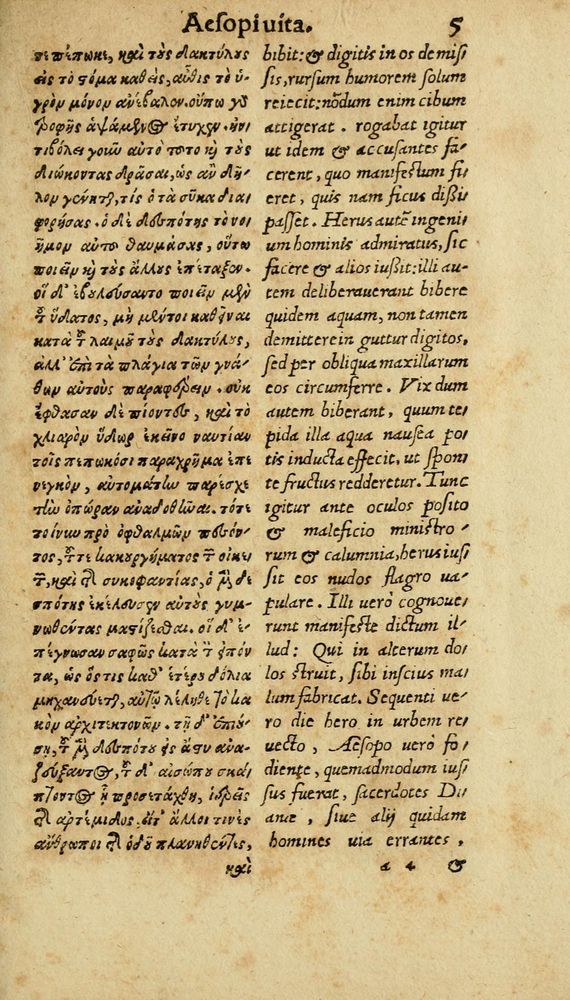 Aesopi uita. 5
πεπίπωκε, καὶ τοὺς δακτύλους
εἰς τὸ στόμα καθεὶς, αὖθις τὸ ὑ-
γρὸν μόνον ἀνέβαλον. οὔπω γὰρ
τροφῆς ἁψάμενος ἔτυχεν. ἠν-
τιβόλει γοιῶ αὐτὸ τοῦτο καὶ τοὺς
διώκοντας δρᾶσαι, ὡς ἂν δῆ-
λον γένηται, τίς ὁ τὰ σῦκα δια-
φορήσας. ὁ δὲ δεσπότης τὸ νοῆ-
μον αὐτοῦ θαυμάσας, οὕτω
ποιεῖν καὶ τοὺς ἄλλους ἐπέταξεν.
οἱ δ' ἐβουλεύσαντο πιεῖν μὲν
τοῦ ὕδατος, μὴ μέντοι καθεῖναι
κατὰ τοῦ λαιμοῦ τοὺς δακτύλους,
ἀλλ' ἐπὶ τὰ πλάγια τῶν γνά-
θων αὐτοὺς παραφέρειν. οὐκ
ἔφθασαν δὲ πίοντες, καὶ τὸ
χλιαρὸν ὕδωρ ἐκεῖνο ναυτίαν
τοῖς πεπωκόσι παραχρῆμα ἐπε
νεγκὸν, αὐτομάτω παρέσχε
τὼ ὀπώραν ἀναδοθῶαι. τότε
τοίνυν πρὸ ὀφθαλμῶν πεσόν-
τος, τοῦ τε κακουργήματος τῶν οἰκε
τῶν, καὶ τῆς συκοφαντίας, ὁ μὲν δε-
σπότης ἐκέλευσεν αὐτοὺς γυμ-
νωθέντας μαστίζεσθαι. οἱ δ' ἐ-
πέγνωσαν σαφῶς κατὰ τὸ ἔπον
τα, ὡς ὅστις καθ' ἑτέρου δόλια
μηχανεύεται, αὐτὸς λέληθε τὸ κα
κὸν ἀρχιτεκτονῶν. τῇ δ' ἐπιού-
σῃ, τοῦ μὲν δεσπότου εἰς ἄστυ ἀνα-
ζεύξαντος, τοῦ δ' αἰσώπου σκά-
πτοντος ᾗ προσετάχθη, ἱερεῖς
τῆς ἀρτέμιδος. εἴτ' ἄλλοι τινὲς
ἄνθρωποι τῆς ὁδοῦ πλανηθέντες,
καὶ
bibit: & digitis in os demis/
sis, rursum humorem solum
reiecit: nōdum enim cibum
attigerat. rogabat igitur
ut idem & accusantes fa/
cerent, quo manifestum fi/
eret, quis nam ficus dißi/
passet. Herus autē ingeni/
um hominis admiratus, sic
facere & alios iußit: illi au-
tem deliberauerant bibere
quidem aquam, non tamen
demittere in guttur digitos,
sed per obliqua maxillarum
eos circumferre. Vix dum
autem biberant, quum te/
pida illa aqua nausea po/
tis inducta effecit, ut spon/
te fructus redderetur. Tunc
igitur ante oculos posito
& maleficio ministro/
rum & calumnia, herus ius/
sit eos nudos flagro ua/
pulare. Illi uerò cognoue/
runt manifeste dictum il/
lud: Qui in alterum do/
los struit, sibi inscius ma/
lum fabricat. Sequenti ue/
ro die hero in urbem re/
uecto, Aesopo uerò fo/
diente, quemadmodum ius/
sus fuerat, sacerdotes Di/
anæ, siue alij quidam
homines uia errantes,
a 4 &